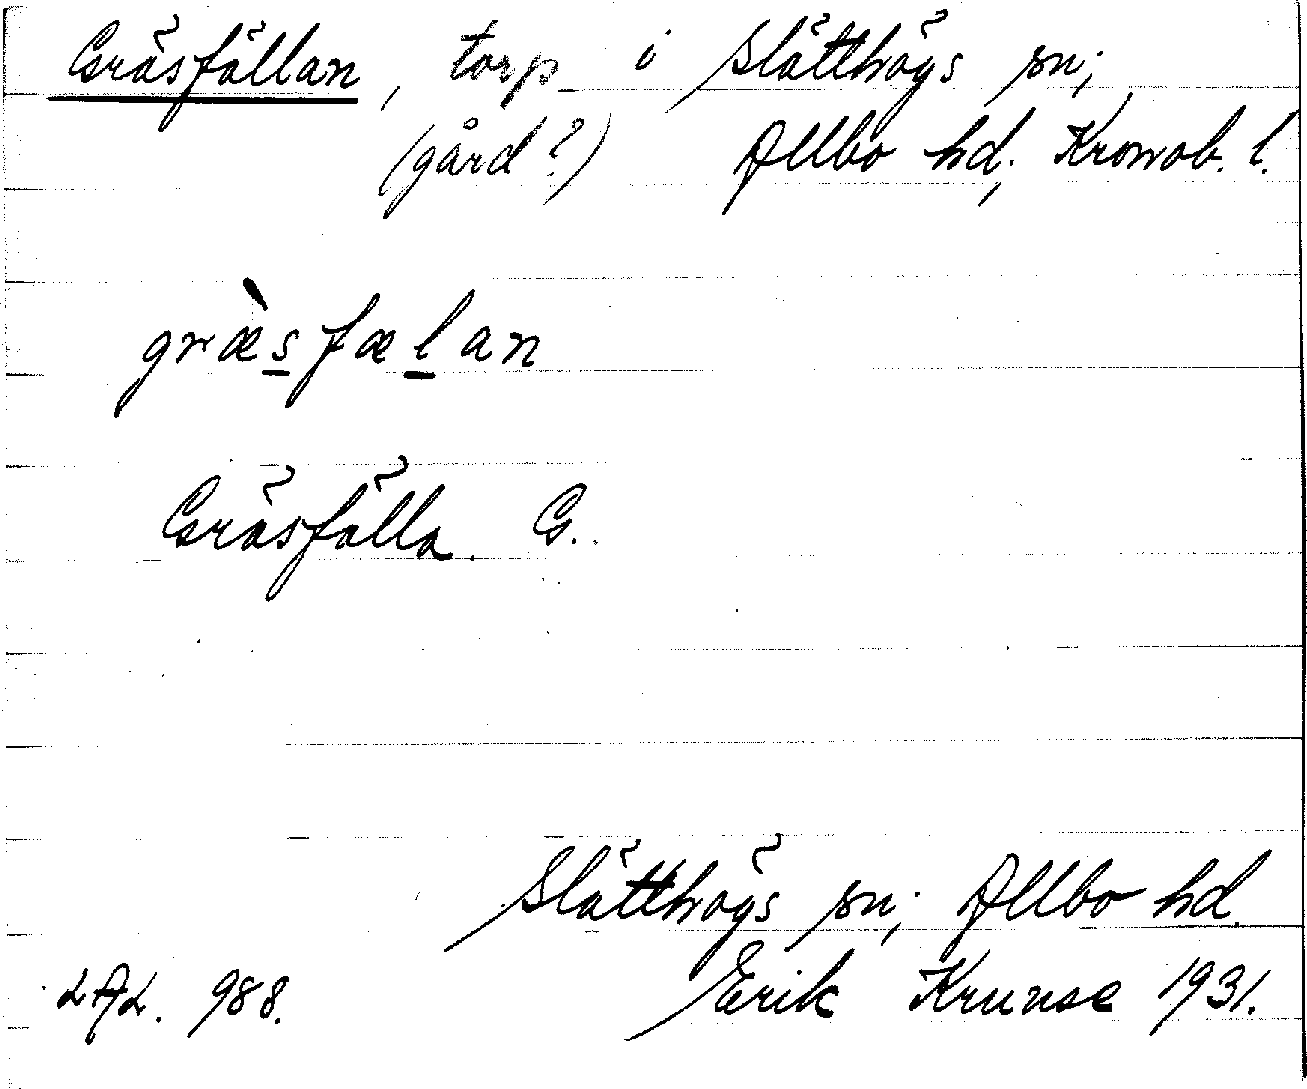 Gräsfällan, torp i Slätthögs sn;
(gård?) Allbo hd; Kronob. l.
græ̀s̲fæl̲an
Gräsfälla. G.
Slätthögs sn; Allbo hd.
LAL. 988. Erik Krunse 1931.